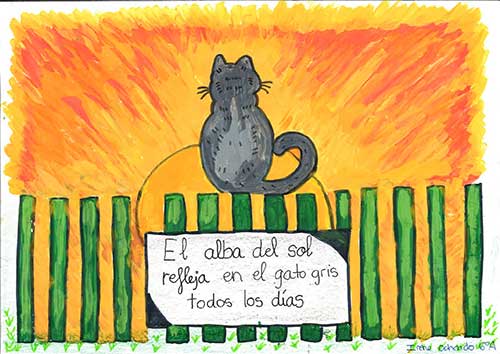 El alba del sol
refleja en el gato gris
todos los días